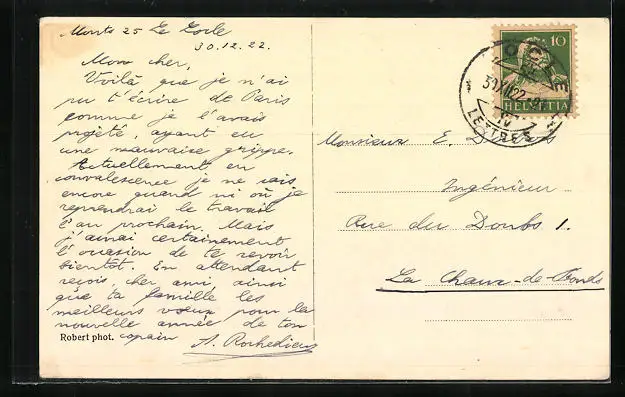 Monts 25 Le Locle
30.12.22.
Mon cher,
Voilà que je n'ai
pu t'écrire de Paris
comme je l'avais
projeté, ayant eu
une mauvaise grippe.
Actuellement en
convalescence je ne sais
encore quand ni où je
reprendrai le travail
l'an prochain. Mais
j'aurai certainement
l'occasion de te revoir
bientôt. En attendant
reçois, cher ami, ainsi
que ta famille les
meilleurs vœux pour la
nouvelle année de ton
copain A. Rochedieu
Robert phot.
10
HELVETIA
LOCLE
31.XII.22
LETTRES
Monsieur E.
Ingénieur
Rue du Doubs 1.
La Chaux-de-Fonds